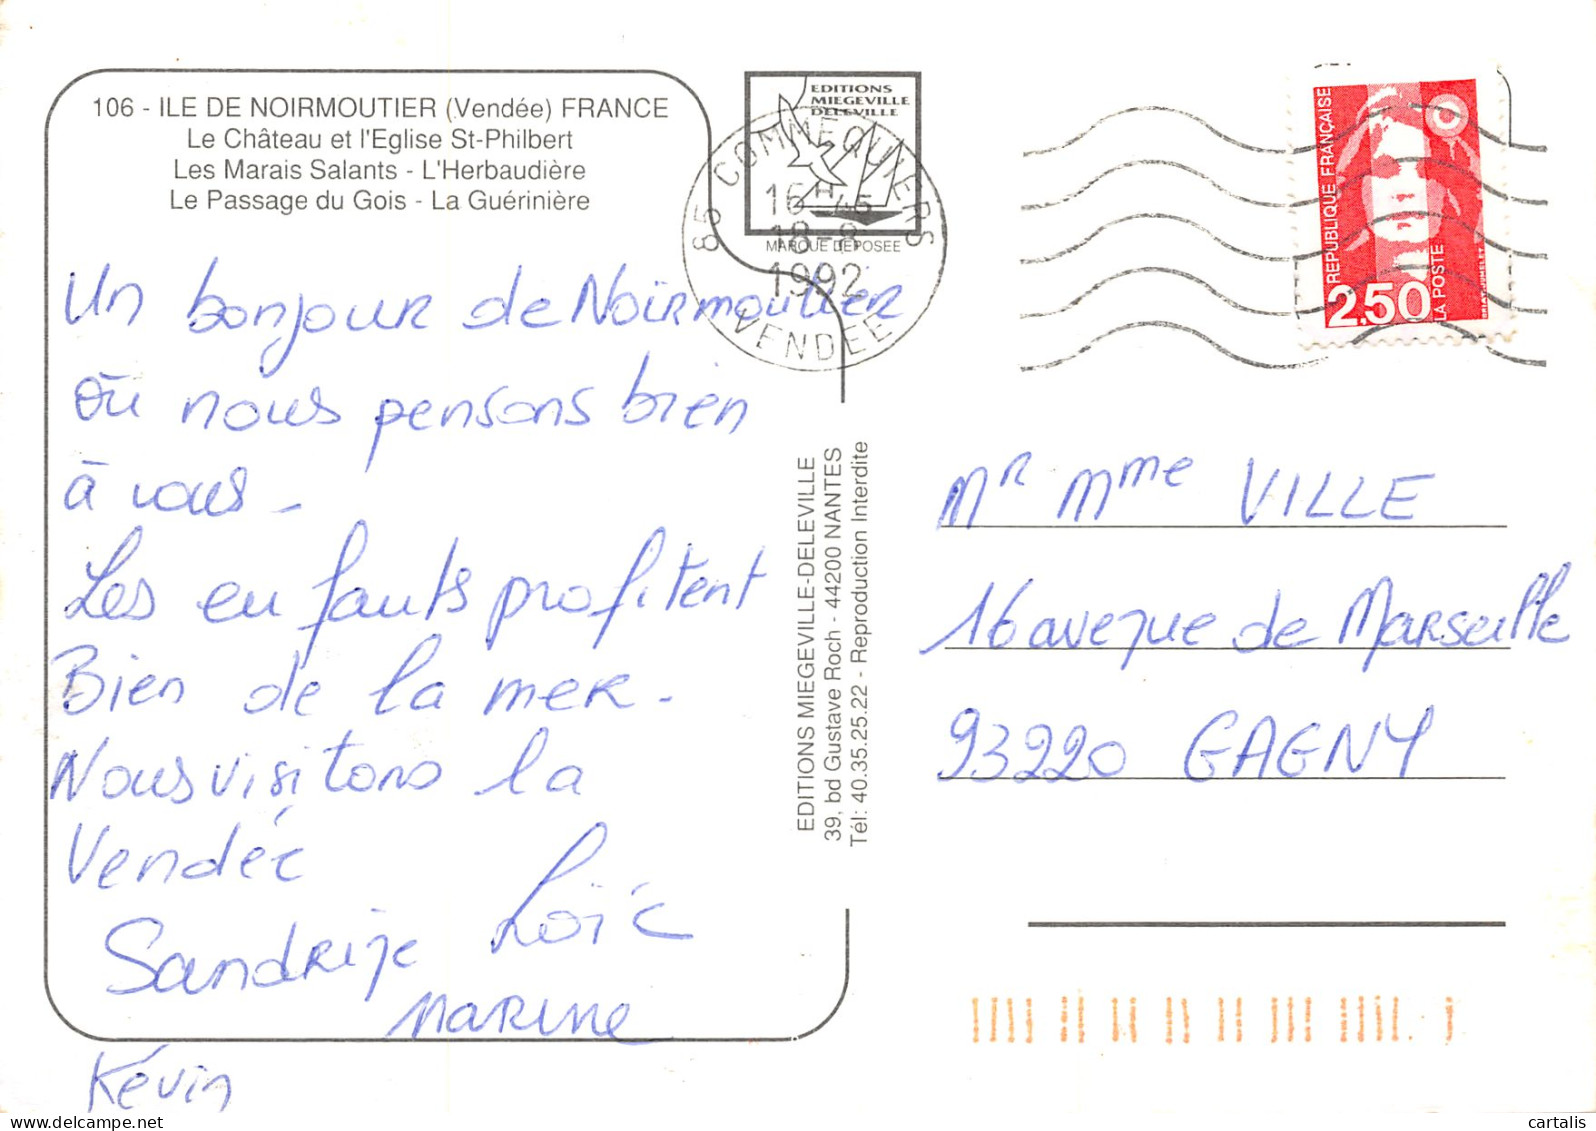 106 - ILE DE NOIRMOUTIER (Vendée) FRANCE
Le Château et l'Eglise St-Philbert
Les Marais Salants - L'Herbaudière
Le Passage du Gois - La Guérinière
EDITIONS
MIEGEVILLE
DELEVILLE
MARQUE DEPOSEE
85 COMMEQUIERS
16H45
18-8
1992
VENDEE
REPUBLIQUE FRANÇAISE
2,50
LA POSTE
Un bonjour de Noirmoutier
où nous pensons bien
à vous -
Les enfants profitent
Bien de la mer.
Nous visitons la
Vendée
Sandrine Loïc
Marine
Kévin
EDITIONS MIEGEVILLE-DELEVILLE
39, bd Gustave Roch - 44200 NANTES
Tél: 40.35.25.22 - Reproduction Interdite
Mr Mme VILLE
16 avenue de Marseille
93220 GAGNY
cartalis